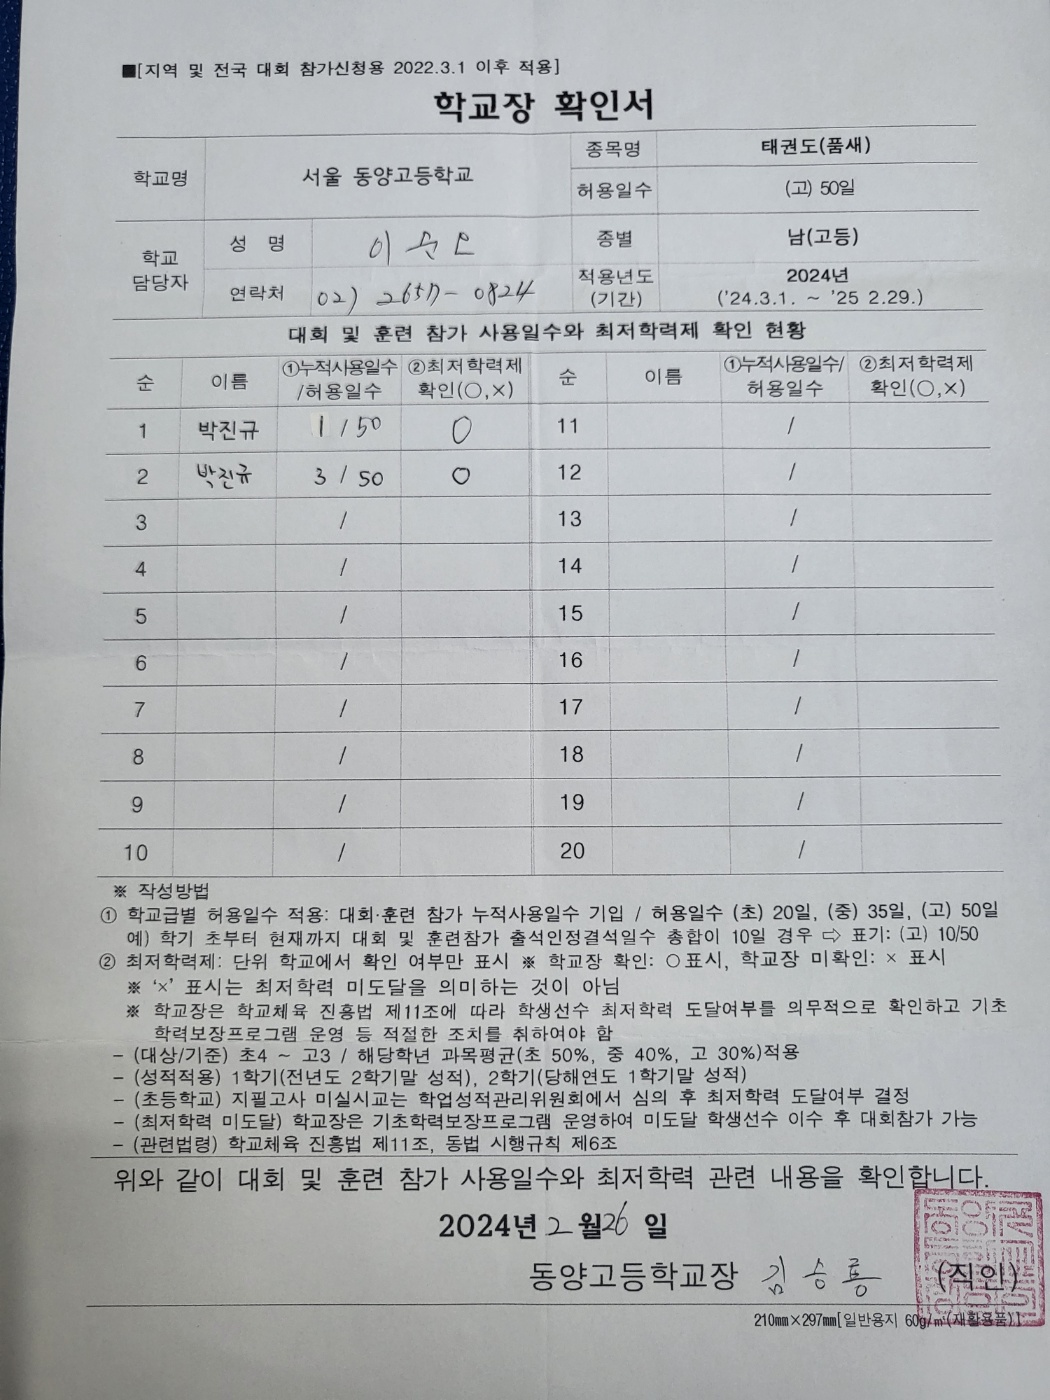 ■[지역 및 전국 대회 참가신청용 2022.3.1 이후 적용]
학교장 확인서
학교명 서울 동양고등학교 종목명 태권도(품새)
허용일수 (고) 50일
학교 담당자 성 명 이 종별 남(고등)
연락처 02) 2657-0824 적용년도 (기간) 2024년 ('24.3.1. ~ '25 2.29.)
대회 및 훈련 참가 사용일수와 최저학력제 확인 현황
순 이름 ①누적사용일수/허용일수 ②최저학력제 확인(○,×) 순 이름 ①누적사용일수/허용일수 ②최저학력제 확인(○,×)
1 박진규 1 / 50 ○ 11 /
2 박진규 3 / 50 ○ 12 /
3 / 13 /
4 / 14 /
5 / 15 /
6 / 16 /
7 / 17 /
8 / 18 /
9 / 19 /
10 / 20 /
※ 작성방법
① 학교급별 허용일수 적용: 대회·훈련 참가 누적사용일수 기입 / 허용일수 (초) 20일, (중) 35일, (고) 50일
예) 학기 초부터 현재까지 대회 및 훈련참가 출석인정결석일수 총합이 10일 경우 ⇨ 표기: (고) 10/50
② 최저학력제: 단위 학교에서 확인 여부만 표시 ※ 학교장 확인: ○표시, 학교장 미확인: × 표시
※ '×' 표시는 최저학력 미도달을 의미하는 것이 아님
※ 학교장은 학교체육 진흥법 제11조에 따라 학생선수 최저학력 도달여부를 의무적으로 확인하고 기초
학력보장프로그램 운영 등 적절한 조치를 취하여야 함
- (대상/기준) 초4 ~ 고3 / 해당학년 과목평균(초 50%, 중 40%, 고 30%)적용
- (성적적용) 1학기(전년도 2학기말 성적), 2학기(당해연도 1학기말 성적)
- (초등학교) 지필고사 미실시교는 학업성적관리위원회에서 심의 후 최저학력 도달여부 결정
- (최저학력 미도달) 학교장은 기초학력보장프로그램 운영하여 미도달 학생선수 이수 후 대회참가 가능
- (관련법령) 학교체육 진흥법 제11조, 동법 시행규칙 제6조
위와 같이 대회 및 훈련 참가 사용일수와 최저학력 관련 내용을 확인합니다.
2024년 2 월 26 일
동양고등학교장 김승룡 (직인)
210㎜×297㎜[일반용지 60g/㎡(재활용품)]